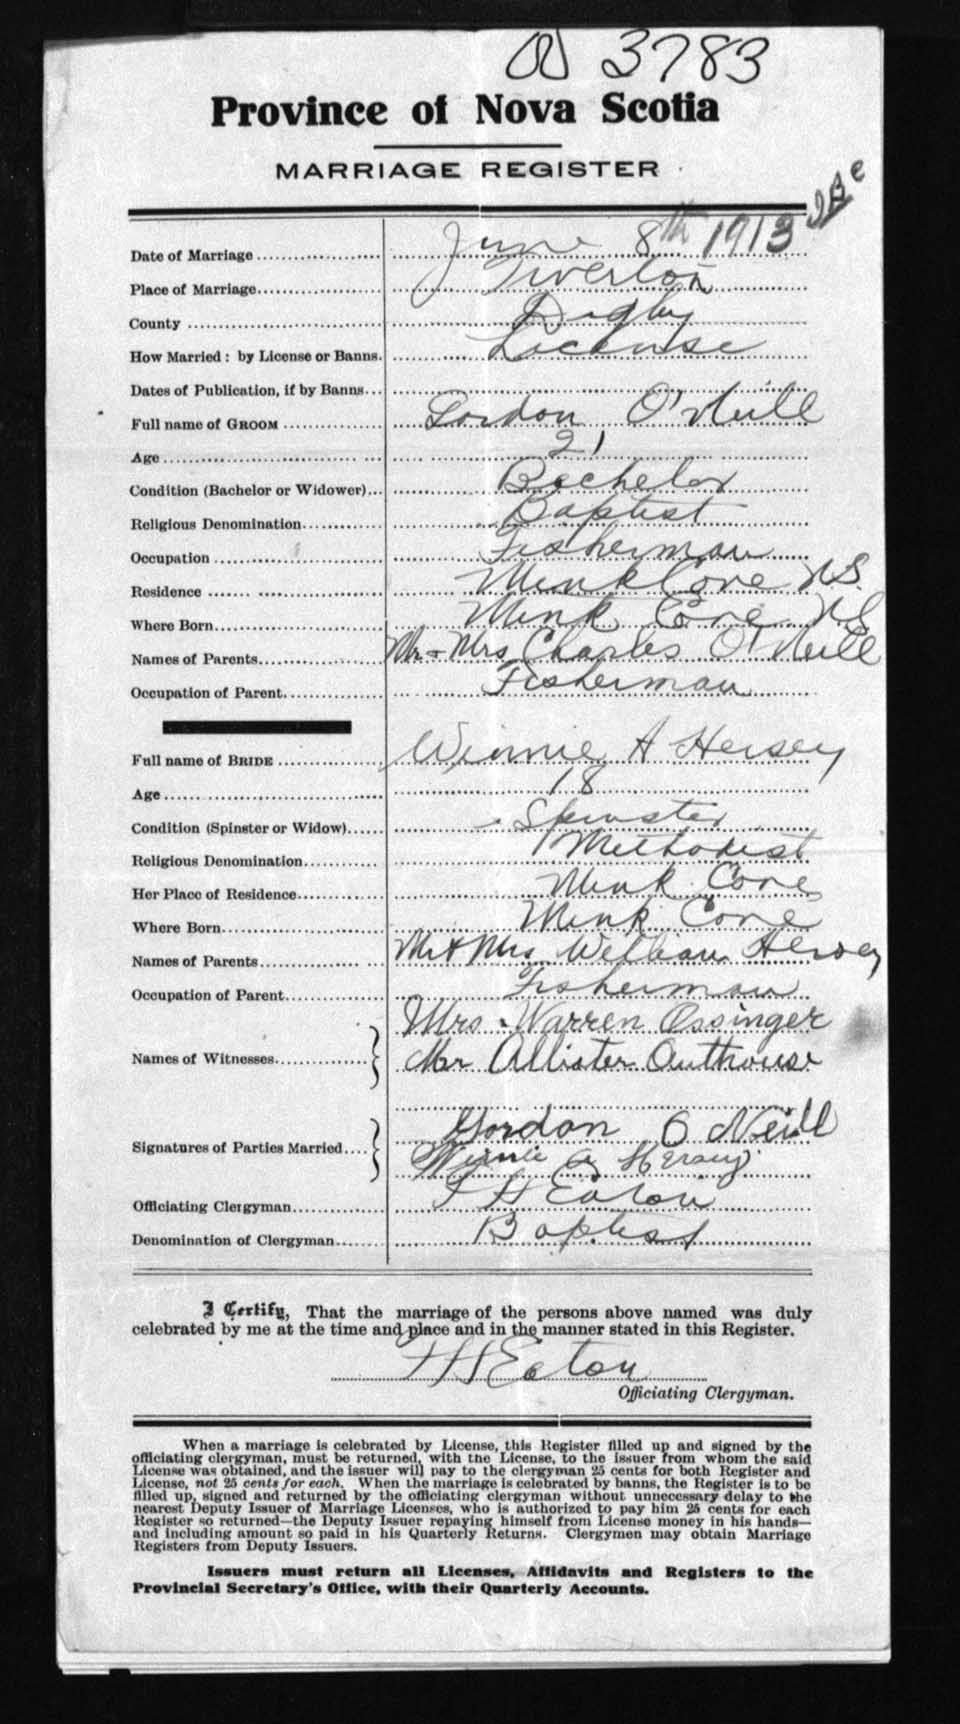 3783
Province of Nova Scotia
MARRIAGE REGISTER
Date of Marriage June 8th 1913
Place of Marriage Tiverton
County Digby
How Married: by License or Banns. License
Dates of Publication, if by Banns
Full name of GROOM Gordon O'Neill
Age 21
Condition (Bachelor or Widower) Bachelor
Religious Denomination Baptist
Occupation Fisherman
Residence Mink Cove N.S.
Where Born Mink Cove N.S
Names of Parents Mr + Mrs Charles O'Neill
Occupation of Parent Fisherman
Full name of BRIDE Winnie A Hersey
Age 18
Condition (Spinster or Widow) Spinster
Religious Denomination Methodist
Her Place of Residence Mink Cove
Where Born Mink Cove
Names of Parents Mr & Mrs William Hersey
Occupation of Parent Fisherman
Mrs. Warren Ossinger
Names of Witnesses Mr Allister Outhouse
Gordon O Neill
Signatures of Parties Married
Winnie A Hersey
Officiating Clergyman F H Eaton
Denomination of Clergyman Baptist
I Certify, That the marriage of the persons above named was duly
celebrated by me at the time and place and in the manner stated in this Register.
F H Eaton
Officiating Clergyman.
When a marriage is celebrated by License, this Register filled up and signed by the
officiating clergyman, must be returned, with the License, to the issuer from whom the said
License was obtained, and the issuer will pay to the clergyman 25 cents for both Register and
License, not 25 cents for each. When the marriage is celebrated by banns, the Register is to be
filled up, signed and returned by the officiating clergyman without unnecessary delay to the
nearest Deputy Issuer of Marriage Licenses, who is authorized to pay him 25 cents for each
Register so returned—the Deputy Issuer repaying himself from License money in his hands—
and including amount so paid in his Quarterly Returns. Clergymen may obtain Marriage
Registers from Deputy Issuers.
Issuers must return all Licenses, Affidavits and Registers to the
Provincial Secretary's Office, with their Quarterly Accounts.